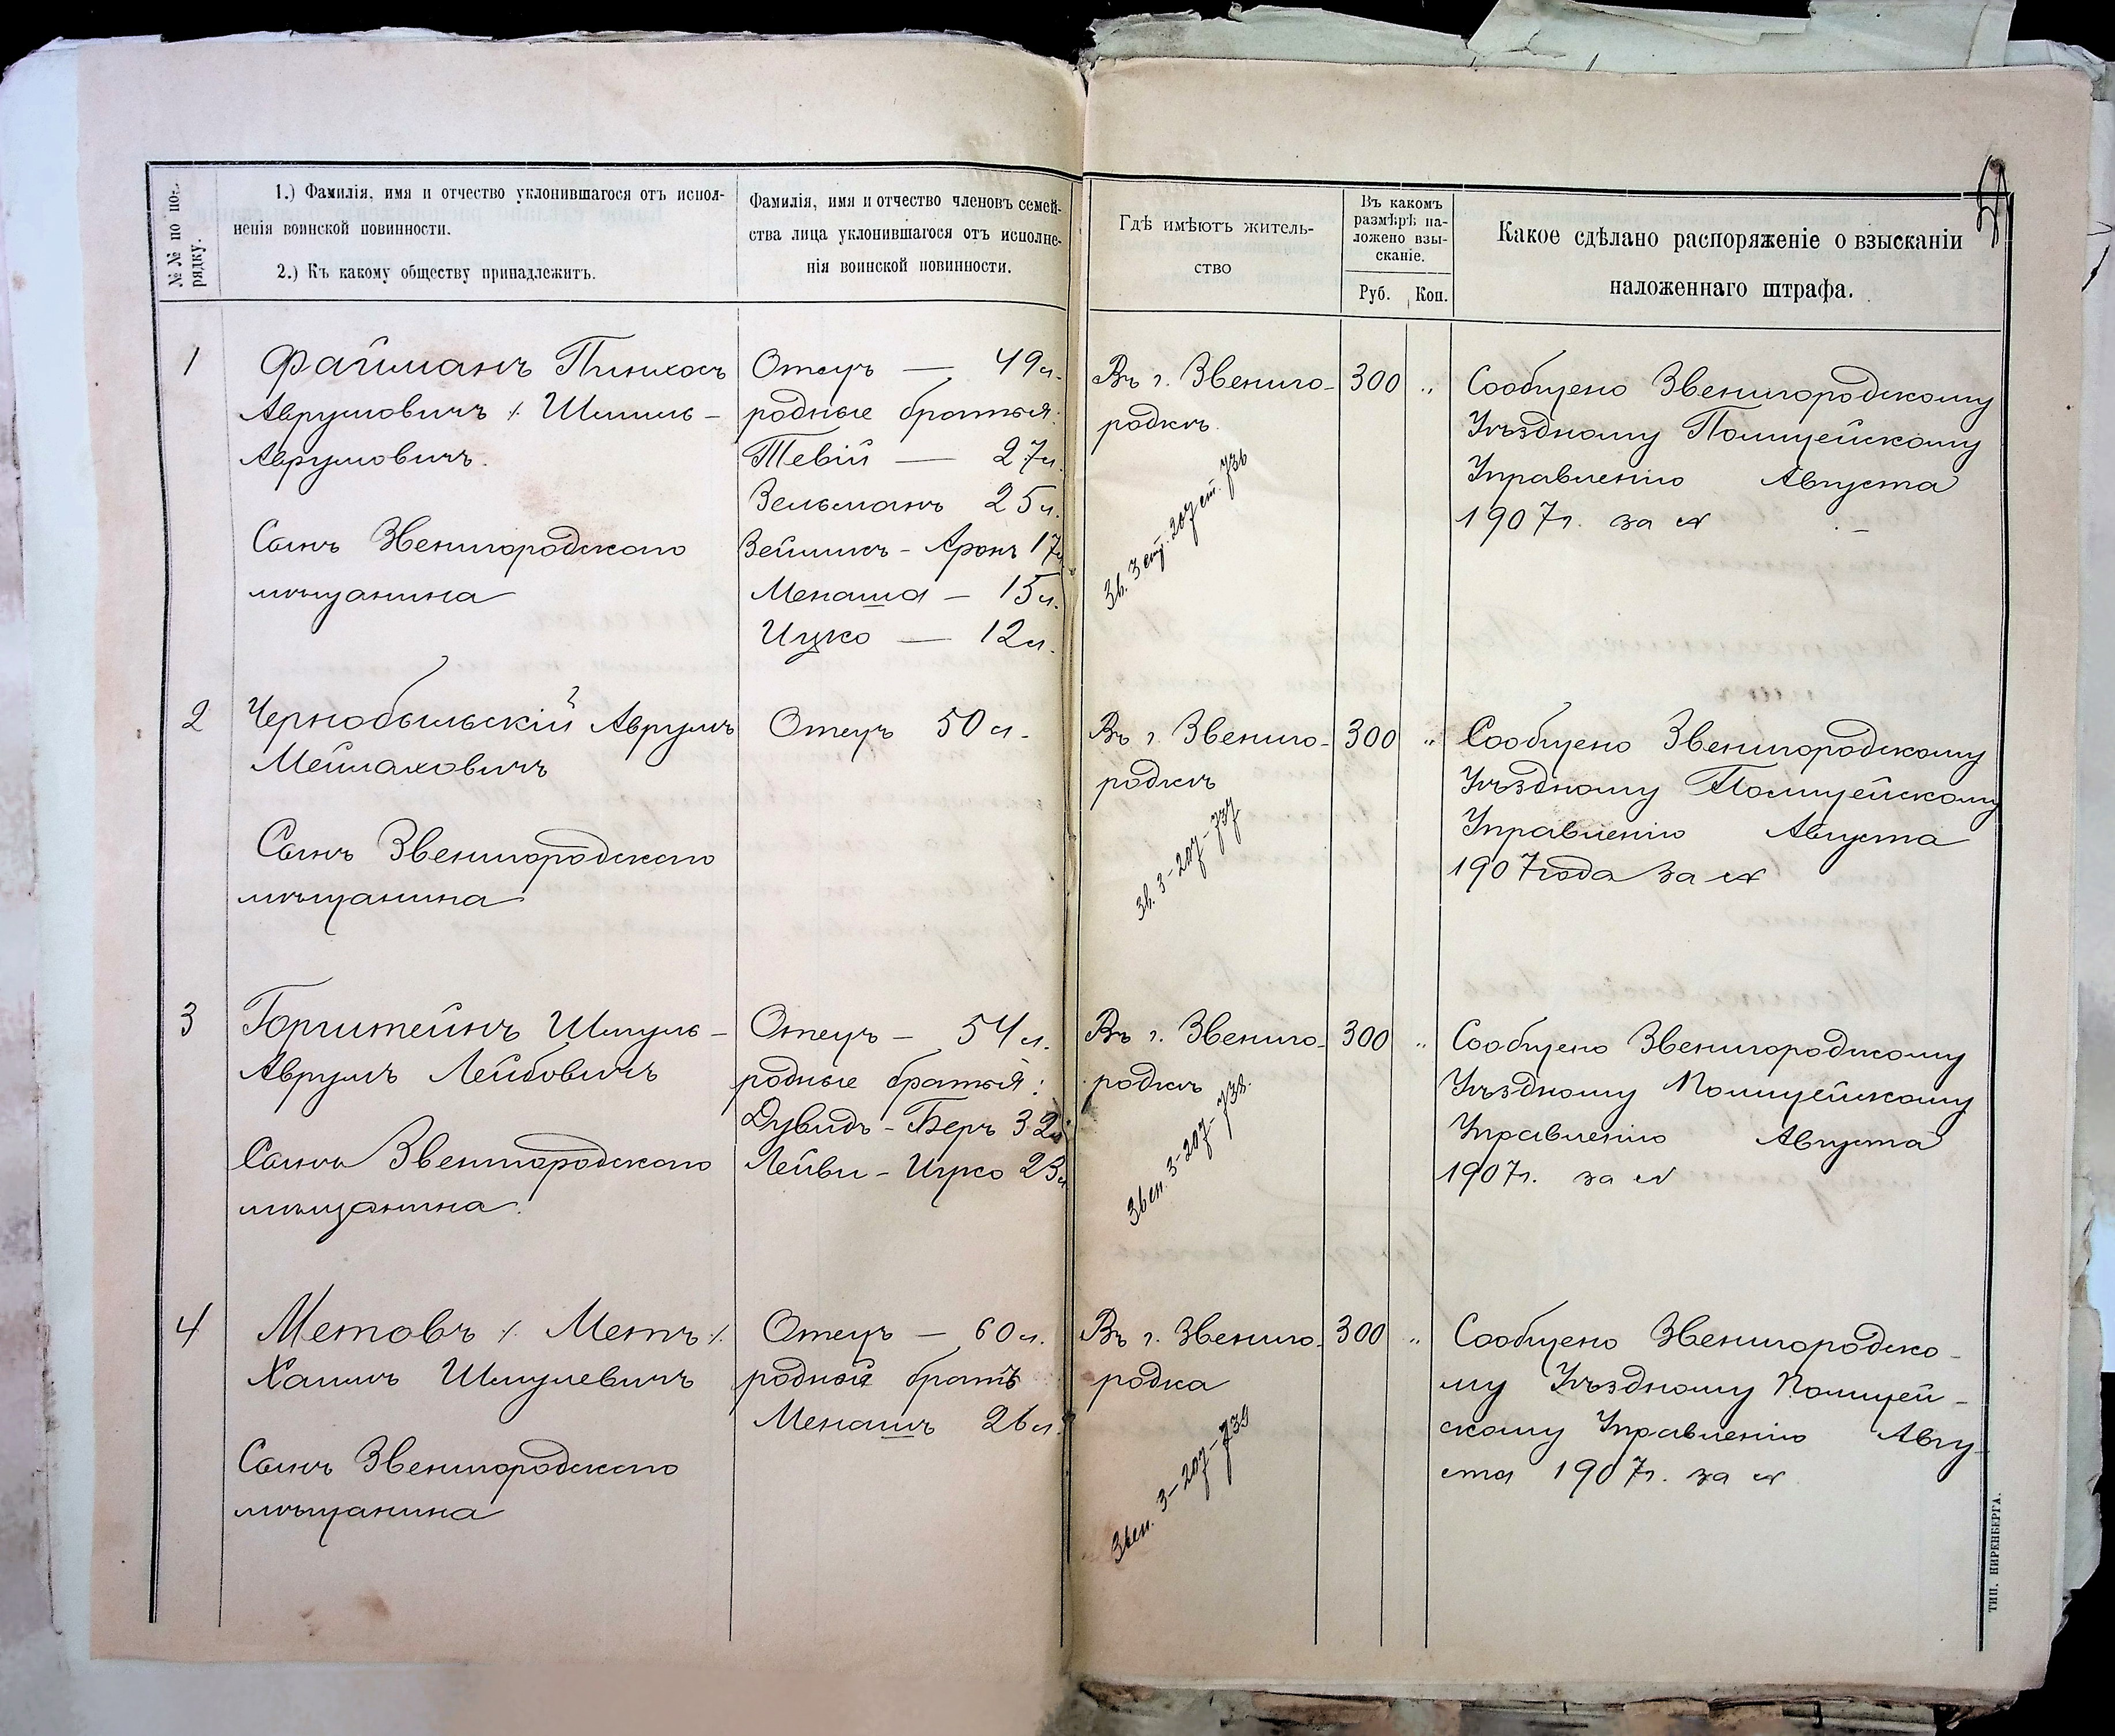 №№ по по-
рядку.
1.) Фамилія, имя и отчество уклонившагося отъ испол-
ненія воинской повинности.
2.) Къ какому обществу принадлежитъ.
Фамилія, имя и отчество членовъ семей-
ства лица уклонившагося отъ исполне-
нія воинской повинности.
Гдѣ имѣютъ житель-
ство
Въ какомъ
размѣрѣ на-
ложено взы-
сканіе.
Руб. Коп.
Какое сдѣлано распоряженіе о взысканіи
наложеннаго штрафа.
1
Файманъ Пинхосъ
Аврумовичъ /. Шмиль-
Аврумовичъ.
Сынъ Звенигородскаго
мѣщанина
Отецъ — 49 л.
родные братья:
Тевій — 27 л.
Зельманъ 25 л.
Зейликъ - Аронъ 17 л
Менаша — 15 л.
Ицко — 12 л.
Въ г. Звениго-
родкѣ.
Зв. 3 ст. 207 ст. 736
300 "
Сообщено Звенигородскому
Уѣздному Полицейскому
Управленію Августа
1907 г. за №
2
Чернобыльскій Аврумъ
Мейлаховичъ
Сынъ Звенигородскаго
мѣщанина
Отецъ 50 л.
Въ г. Звениго-
родкѣ
Зв. 3 - 207 - 737
300 "
Сообщено Звенигородскому
Уѣздному Полицейскому
Управленію Августа
1907 года за №
3
Горштейнъ Шмуль-
Аврумъ Лейбовичъ
Сынъ Звенигородскаго
мѣщанина.
Отецъ — 54 л.
родные братья:
Дувидъ - Беръ 32 л
Лейви - Ицко 23 л
Въ г. Звениго-
родкѣ
Звен. 3 - 207 - 738.
300 "
Сообщено Звенигородскому
Уѣздному Полицейскому
Управленію Августа
1907 г. за №
4
Метовъ /. Метъ /.
Хаимъ Шмулевичъ
Сынъ Звенигородскаго
мѣщанина
Отецъ — 60 л.
родной братъ
Менашъ 26 л.
Въ г. Звениго-
родка
Звен. 3 - 207 - 739
300 "
Сообщено Звенигородско-
му Уѣздному Полицей-
скому Управленію Авгу-
ста 1907 г. за №
ТИП. НИРЕНБЕРГА.